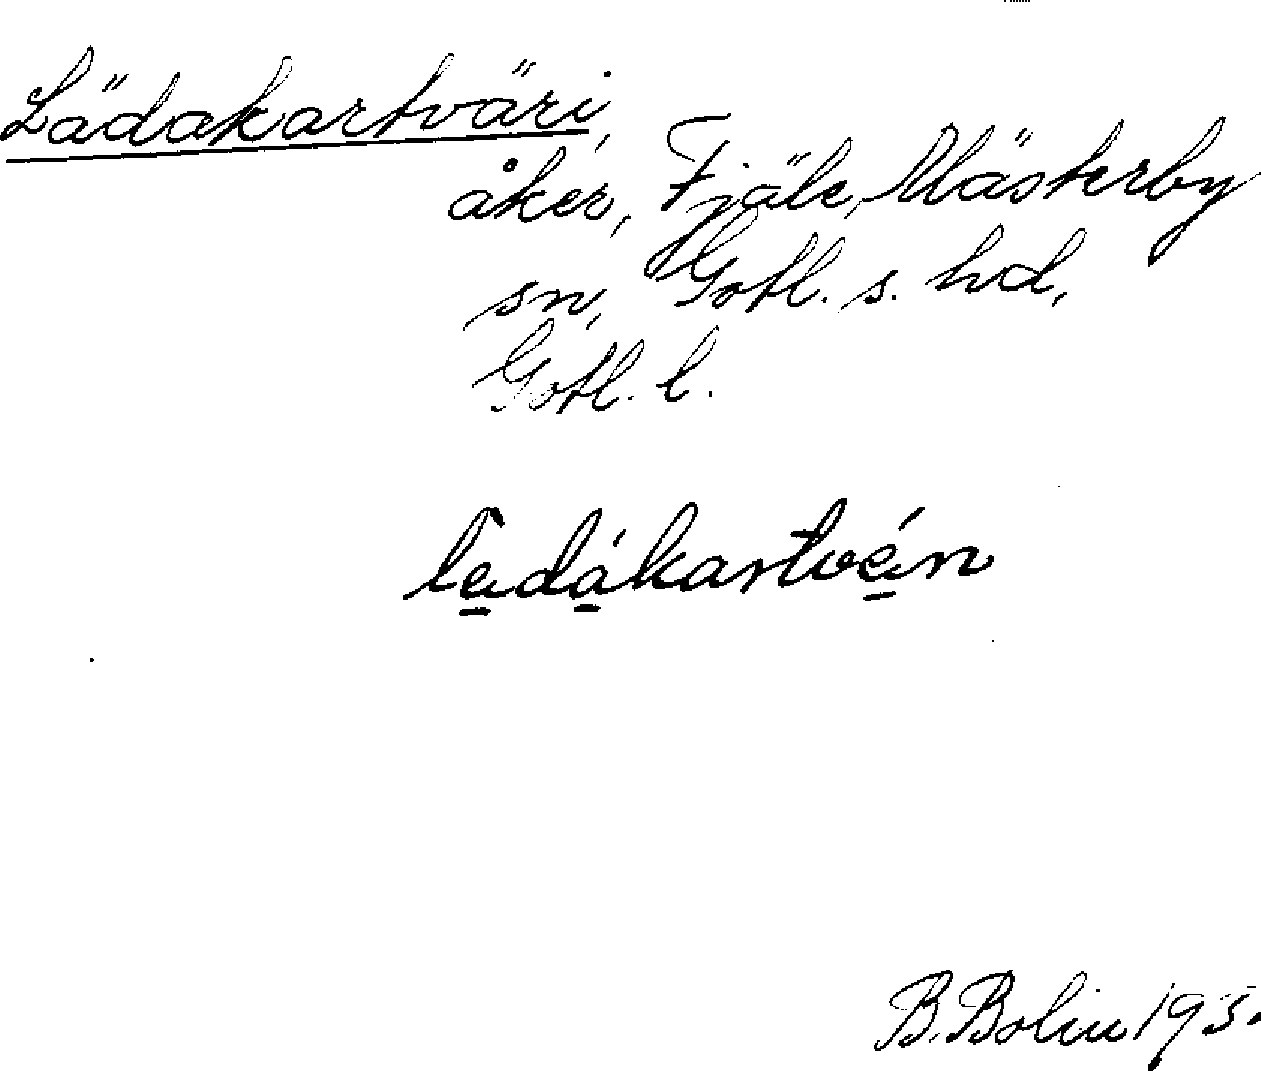 Lädakartväri,
åker, Fjäle, Mästerby
sn, Gotl. s. hd,
Gotl. l.
B. Bolin 193